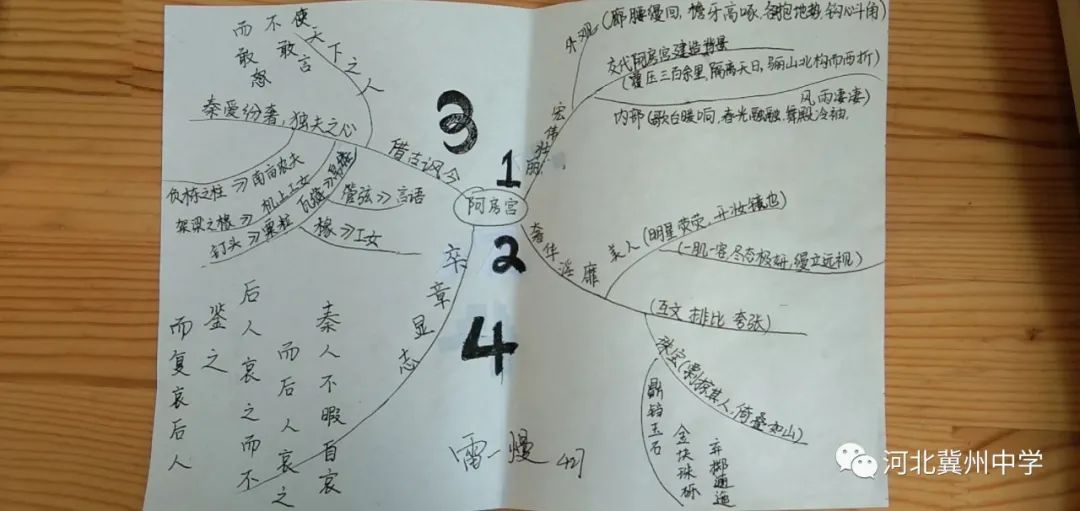 阿房宫
1
宏伟壮丽
外观(廊腰缦回,檐牙高啄,各抱地势,钩心斗角)
交代阿房宫建造背景
(覆压三百余里,隔离天日,骊山北构而西折)
内部(歌台暖响,春光融融,舞殿冷袖,
风雨凄凄)
2
奢华淫靡
美人(明星荧荧,开妆镜也)
(一肌一容尽态极妍,缦立远视)
(互文 排比 夸张)
珠宝(剽掠其人,倚叠如山)
鼎铛玉石
金块珠砾
弃掷逦迤
3
借古讽今
使天下之人
不敢言
而敢怒
秦爱纷奢,独夫之心
负栋之柱≫南亩农夫
架梁之椽≫机上工女
钉头≫粟粒
管弦≫言语
椽≫工女
4
卒章显志
秦人不暇自哀
而后人哀之
后人哀之而不
鉴之
而复哀后人
雷一熳
427
河北冀州中学